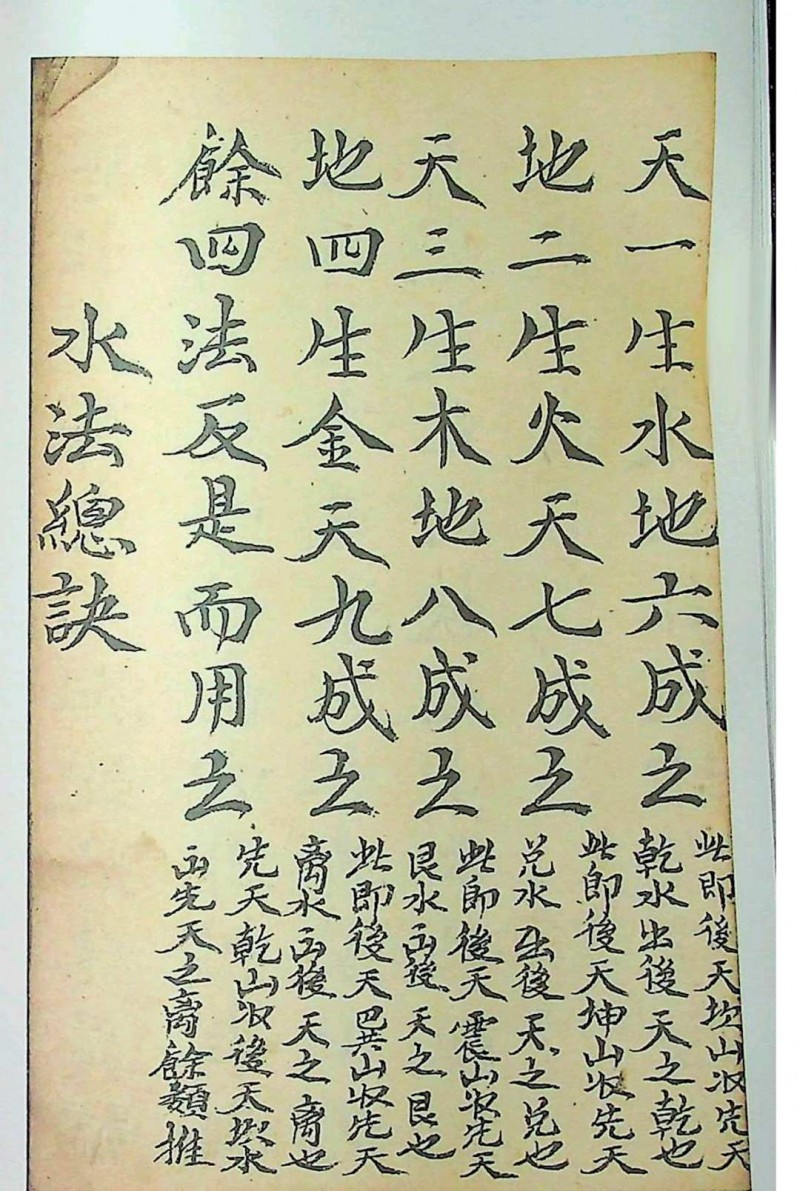 天一生水地六成之
此即後天坎山收先天
乾水出後天之乾也
地二生火天七成之
此即後天坤山收先天
兌水出後天之兌也
天三生木地八成之
此即後天震山收先天
艮水出後天之艮也
地四生金天九成之
此即後天巽山收先天
离水出後天之离也
餘四法反是而用之
先天乾山收後天坎水
出先天之离餘類推
水法總訣